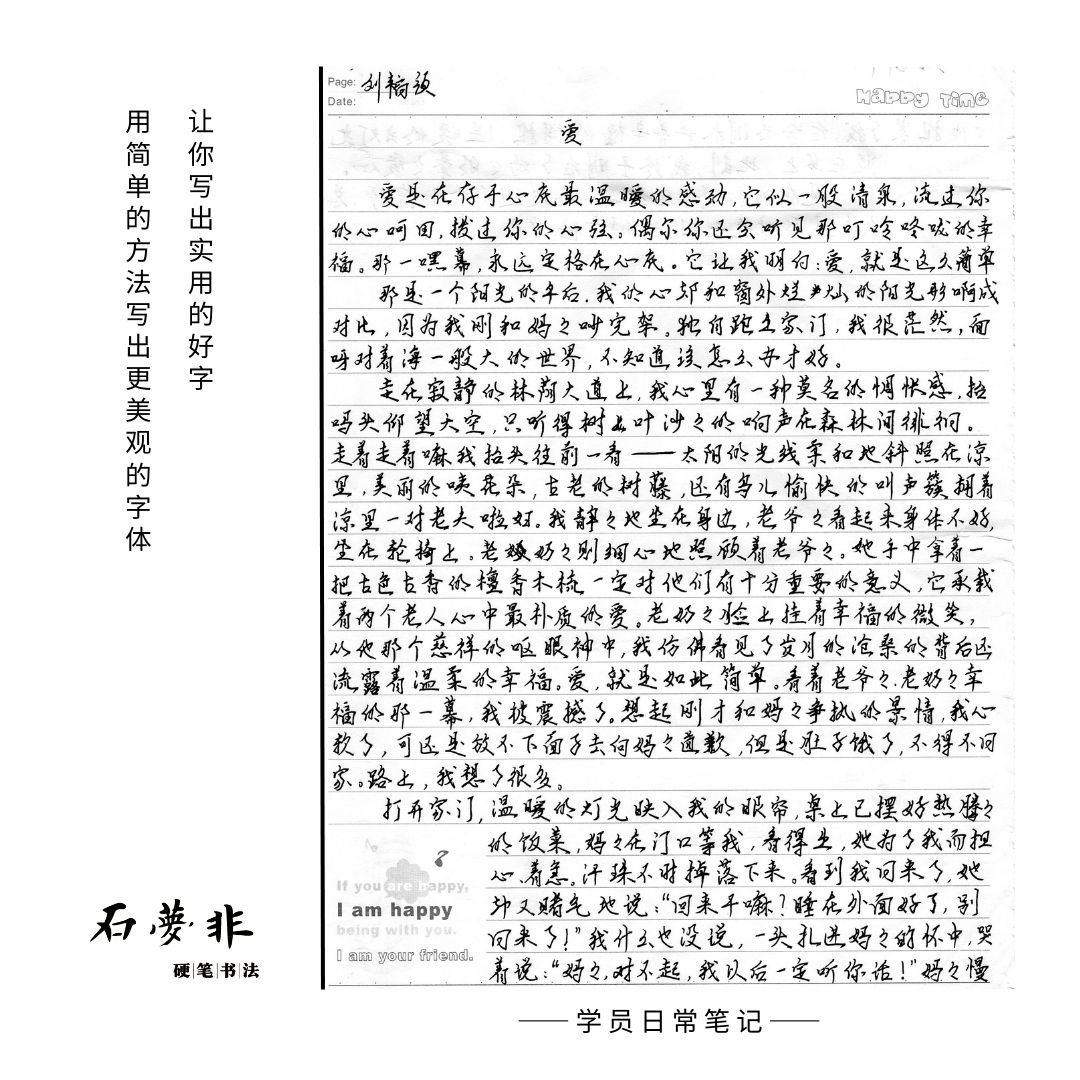 让你写出实用的好字
用简单的方法写出更美观的字体
Page: 刘
Date:
Happy Time
爱
爱是在存于心底最温暖的感动，它似一般清泉，流过你
的心呵田，拨过你的心弦。偶尔你还会听见那叮呤咚咙的幸
福。那一嘿幕，永远定格在心底。它让我明白：爱，就是这么简单
那是一个阳光的午后，我的心却和窗外烂灿的阳光形啊成
对比，因为我刚和妈々吵完架。独自跑出家门，我很茫然，面
呀对着海一般大的世界，不知道该怎么办才好。
走在寂静的林荫大道上，我心里有一种莫名的惆怅感，抬
吗头仰望天空，只听得树上叶沙々的响声在森林间徘徊。
走着走着嘛我抬头往前一看——太阳的光线柔和地斜照在凉
里，美丽的咦花朵，古老的树藤，还有鸟儿愉快的叫声簇拥着
凉里一对老夫啦奴。我静々地坐在身边，老爷々看起来身体不好，
坐在轮椅上。老奶々则细心地照顾着老爷々。她手中拿着一
把古色古香的檀香木梳一定对他们有十分重要的意义，它承载
着两个老人心中最朴质的爱。老奶々脸上挂着幸福的微笑，
从他那个慈祥的呕眼神中，我仿佛看见了岁月的沧桑的背后还
流露着温柔的幸福。爱，就是如此简单。看着老爷々、老奶々幸
福的那一幕，我被震撼了。想起刚才和妈々争执的景情，我心
软了，可还是放不下面子去向妈々道歉，但是肚子饿了，不得不回
家。路上，我想了很多。
打开家门，温暖的灯光映入我的眼帘，桌上已摆好热腾々
的饭菜，妈々在门口等我，看得出，她为了我而担
心、着急。汗珠不时掉落下来。看到我回来了，她
却又赌气地说：“回来干嘛？睡在外面好了，别
回来了！”我什么也没说，一头扎进妈々的怀中，哭
着说：“妈々，对不起，我以后一定听你话！”妈々慢
If you are happy,
I am happy
being with you.
I am your friend.
石夢非
硬笔书法
——学员日常笔记——